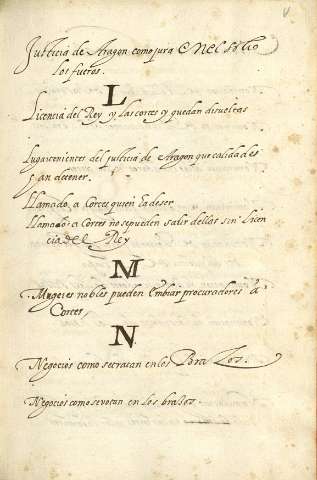 Justicia de Aragon como jura en el solio
los fueros.
L
Licencia del Rey y las cortes y quedan disueltas
Lugartenientes del justicia de Aragon que calidades
an de tener.
Llamado a Cortes quien a de ser
Llamado a Cortes no se pueden salir dellas sin licen
cia del Rey
M
Mugeres nobles pueden embiar procuradores a
Cortes,
N
Negocios como se tratan en los Brazos.
Negocios como se votan en los brasos.